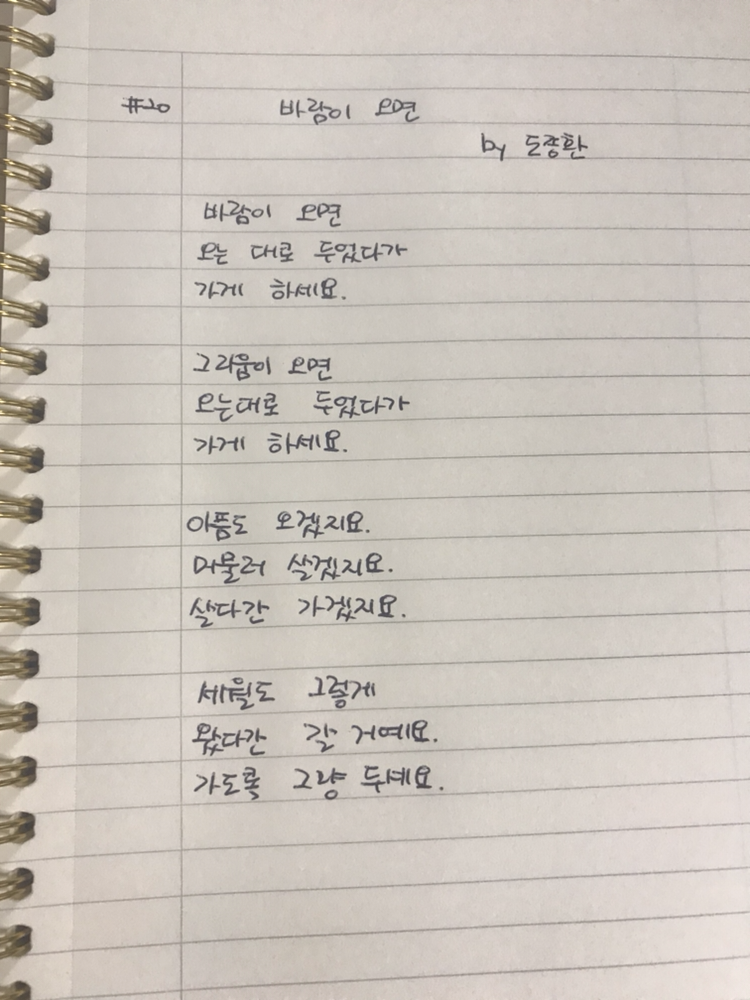 #20 바람이 오면
by 도종환
바람이 오면
오는 대로 두었다가
가게 하세요.
그리움이 오면
오는대로 두었다가
가게 하세요.
아픔도 오겠지요.
머물러 살겠지요.
살다간 가겠지요.
세월도 그렇게
왔다간 갈 거예요.
가도록 그냥 두세요.